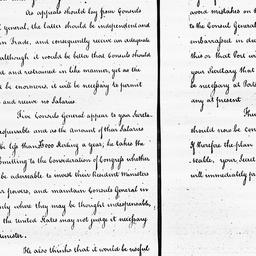 As appeals should lay from Consuls
general, the latter should be independent
in Trade, and consequently receive an adequate
although it would be better that Consuls should
and restrained in like manner, yet as the
be enormous, it will be necessary to permit
and receive no Salaries.
Five Consuls General appear to your Secreta-
indispensable and as the amount of their Salaries
be less than £1000 Sterling a year, he takes the
submitting to the Consideration of Congress whether
be adviseable to invest their Resident Ministers
powers, and maintain Consuls General in
only where they may be thought indispensable,
the United States may not judge it necessary
Minister.
He also thinks that it would be useful
avoid mistakes on
to the Consul General
embarrassed in
this or that Port wi
your Secretary that
be necessary at Ports
any at present
This
should now be con
If therefore the plan
-seable, your Secret
will immediately pa